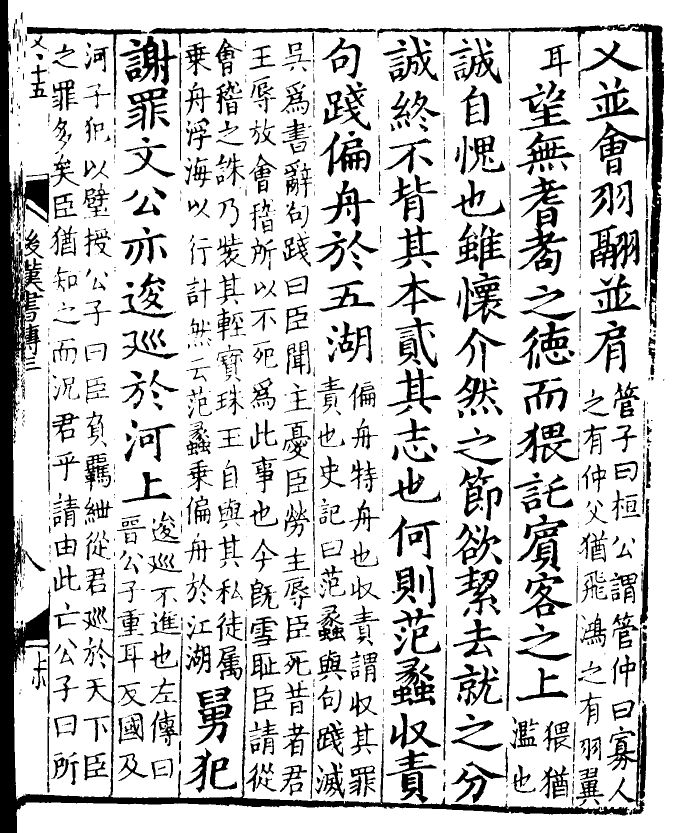 乂並會羽翮並肩管子曰桓公謂管仲曰寡人
之有仲父猶飛鴻之有羽翼
耳望無耆耇之德而猥託賓客之上猥猶
濫也
誠自愧也雖懷介然之節欲絜去就之分
誠終不背其本貳其志也何則范蠡收責
句踐偏舟於五湖偏舟特舟也收責謂收其罪
責也史記曰范蠡與句踐滅
吳爲書辭句踐曰臣聞主憂臣勞主辱臣死昔者君
王辱放會稽所以不死爲此事也今旣雪耻臣請從
會稽之誅乃裝其輕寶珠王自與其私徒属
乗舟浮海以行計然云范蠡乗偏舟於江湖舅犯
謝罪文公亦逡巡於河上逡巡不進也左傳曰
晉公子重耳反國及
河子犯以璧授公子曰臣負羈紲從君巡於天下臣
之罪多矣臣猶知之而況君乎請由此亡公子曰所
後漢書傳三
八